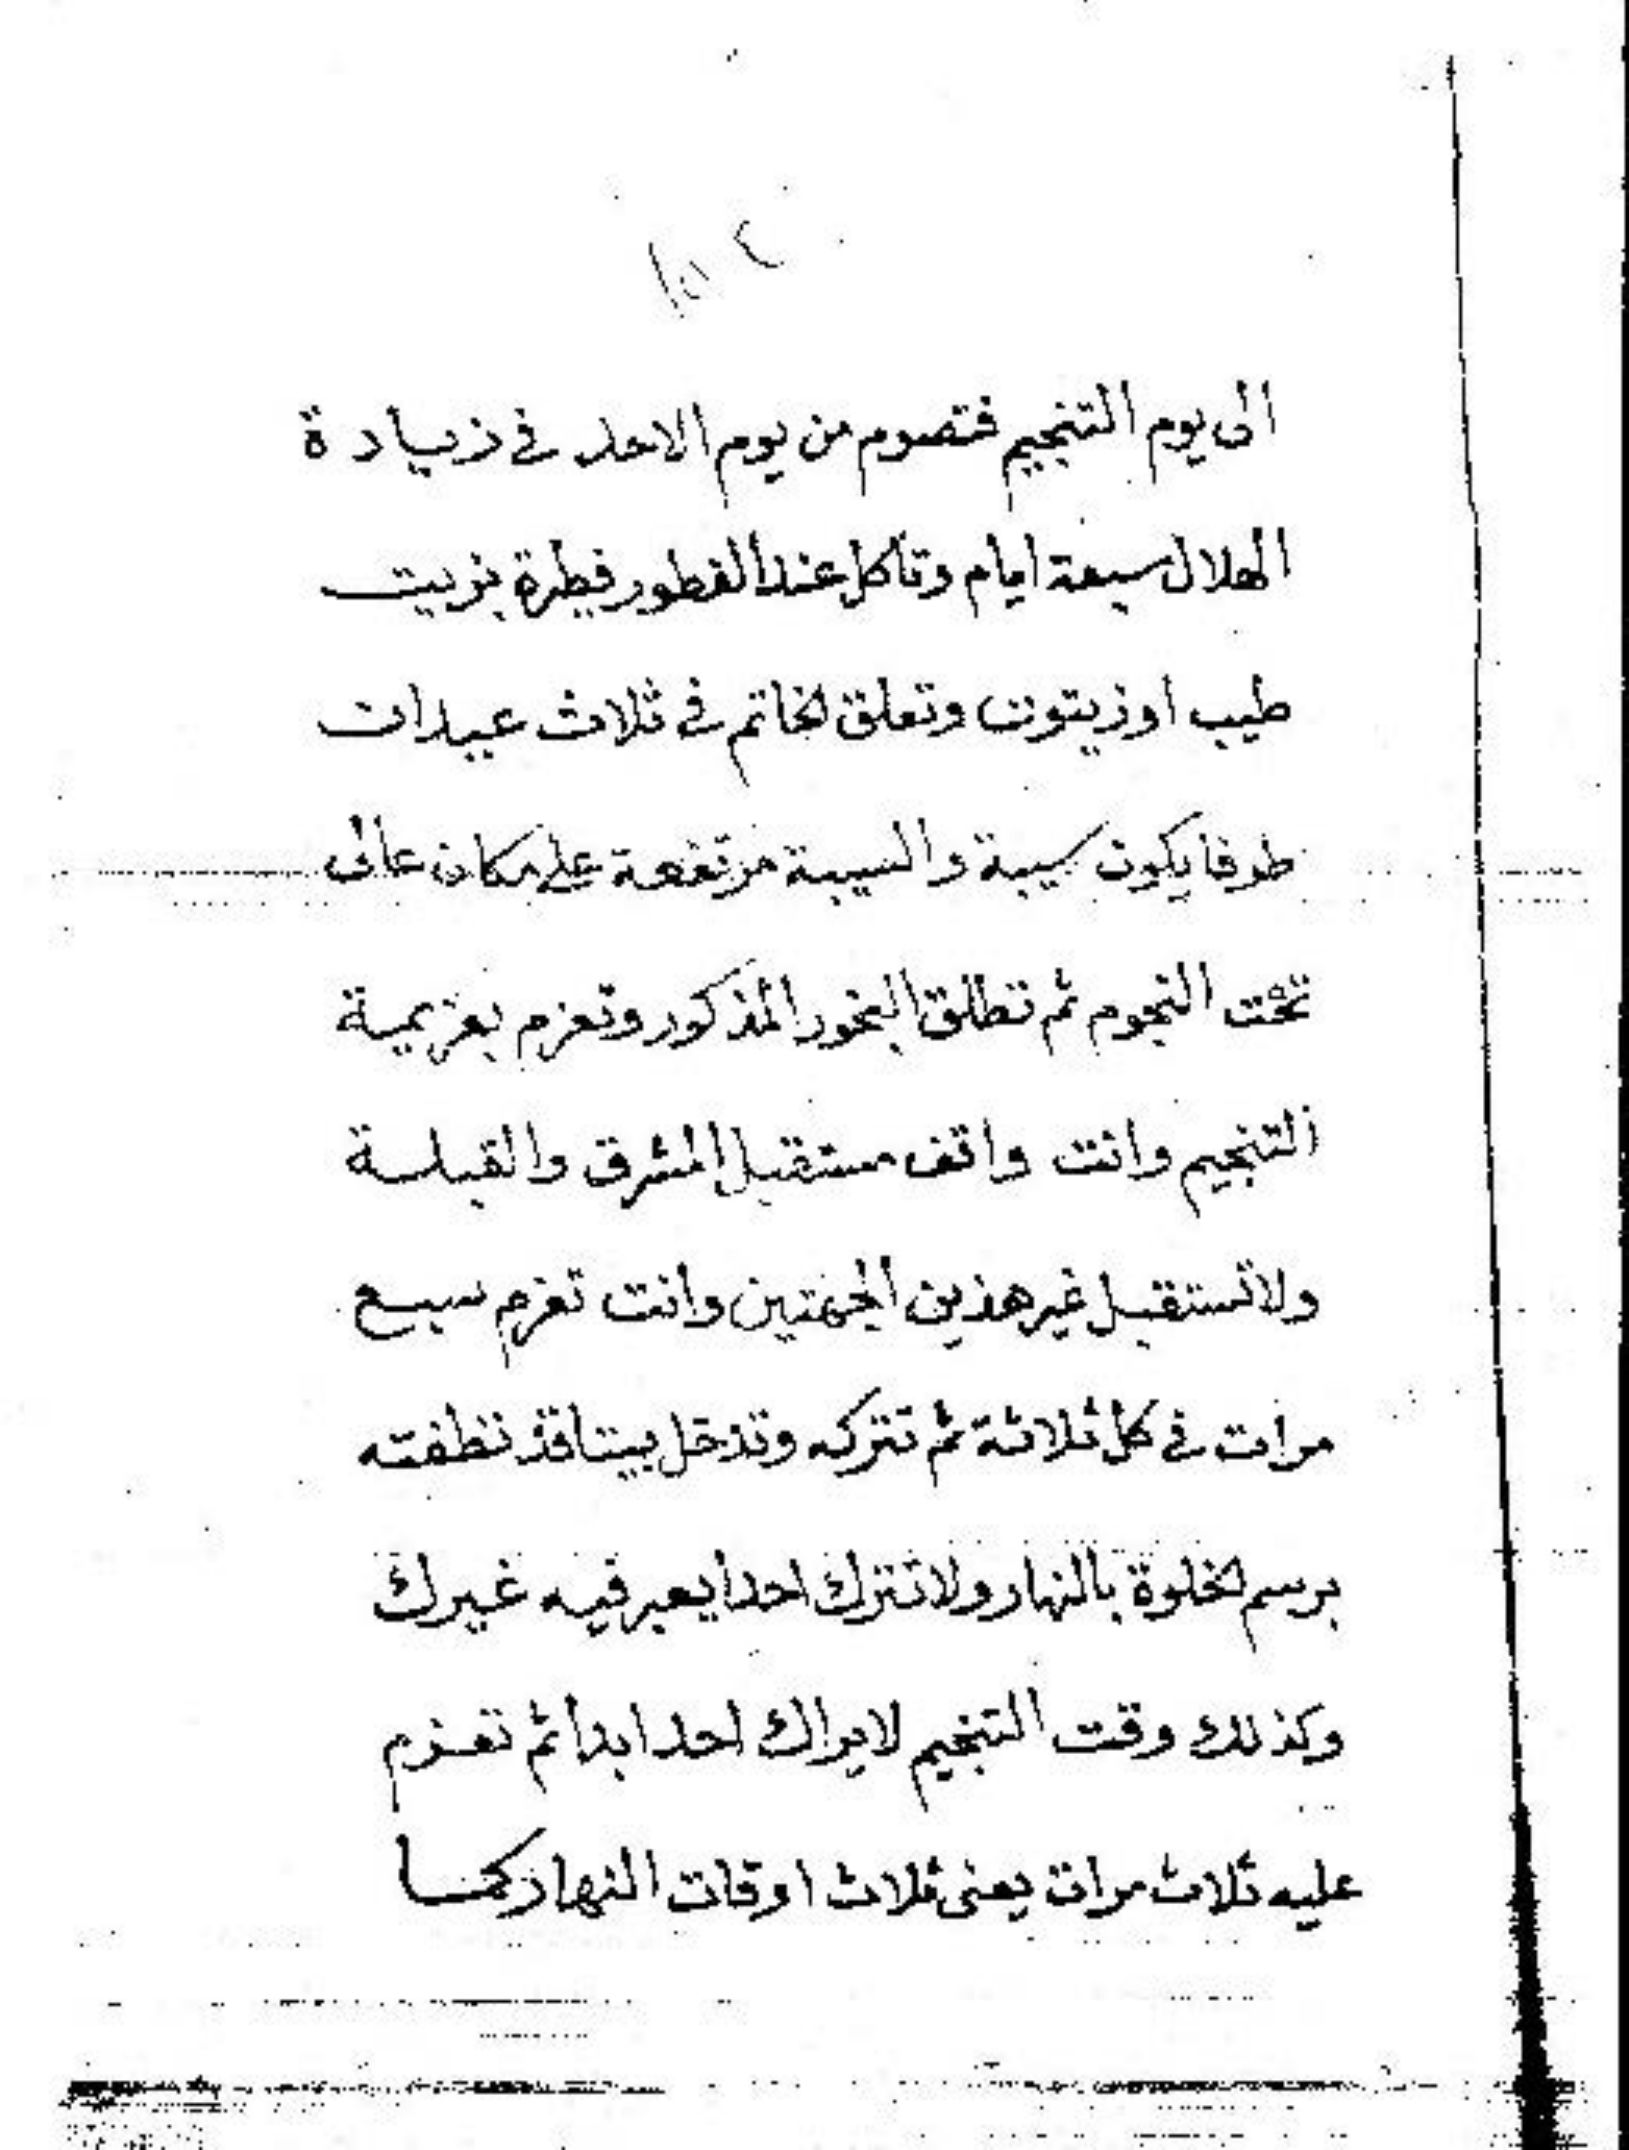 الى يوم التنجيم فتصوم من يوم الاحد في زيادة
الهلال سبعة ايام وتأكل عند الفطور فطرة بزيت
طيب او زيتون وتعلق الخاتم في ثلاث عيدان
طرفا يكون سيبة والسيبة مرتفعة على مكان عالى
تحت النجوم ثم تطلق البخور المذكور وتعزم بعزيمة
التنجيم وانت واقف مستقبل المشرق والقبلة
ولا تستقبل غير هذين الجهتين وانت تعزم سبع
مرات في كل ثلاثة ثم تتركه وتدخل بيتا قد نظفته
برسم الخلوة بالنهار ولا تترك احدا يعبر فيه غيرك
وكذلك وقت التنجيم لا يراك احد ابدا ثم تعزم
عليه ثلاث مرات يعنى ثلاث اوقات النهار كما